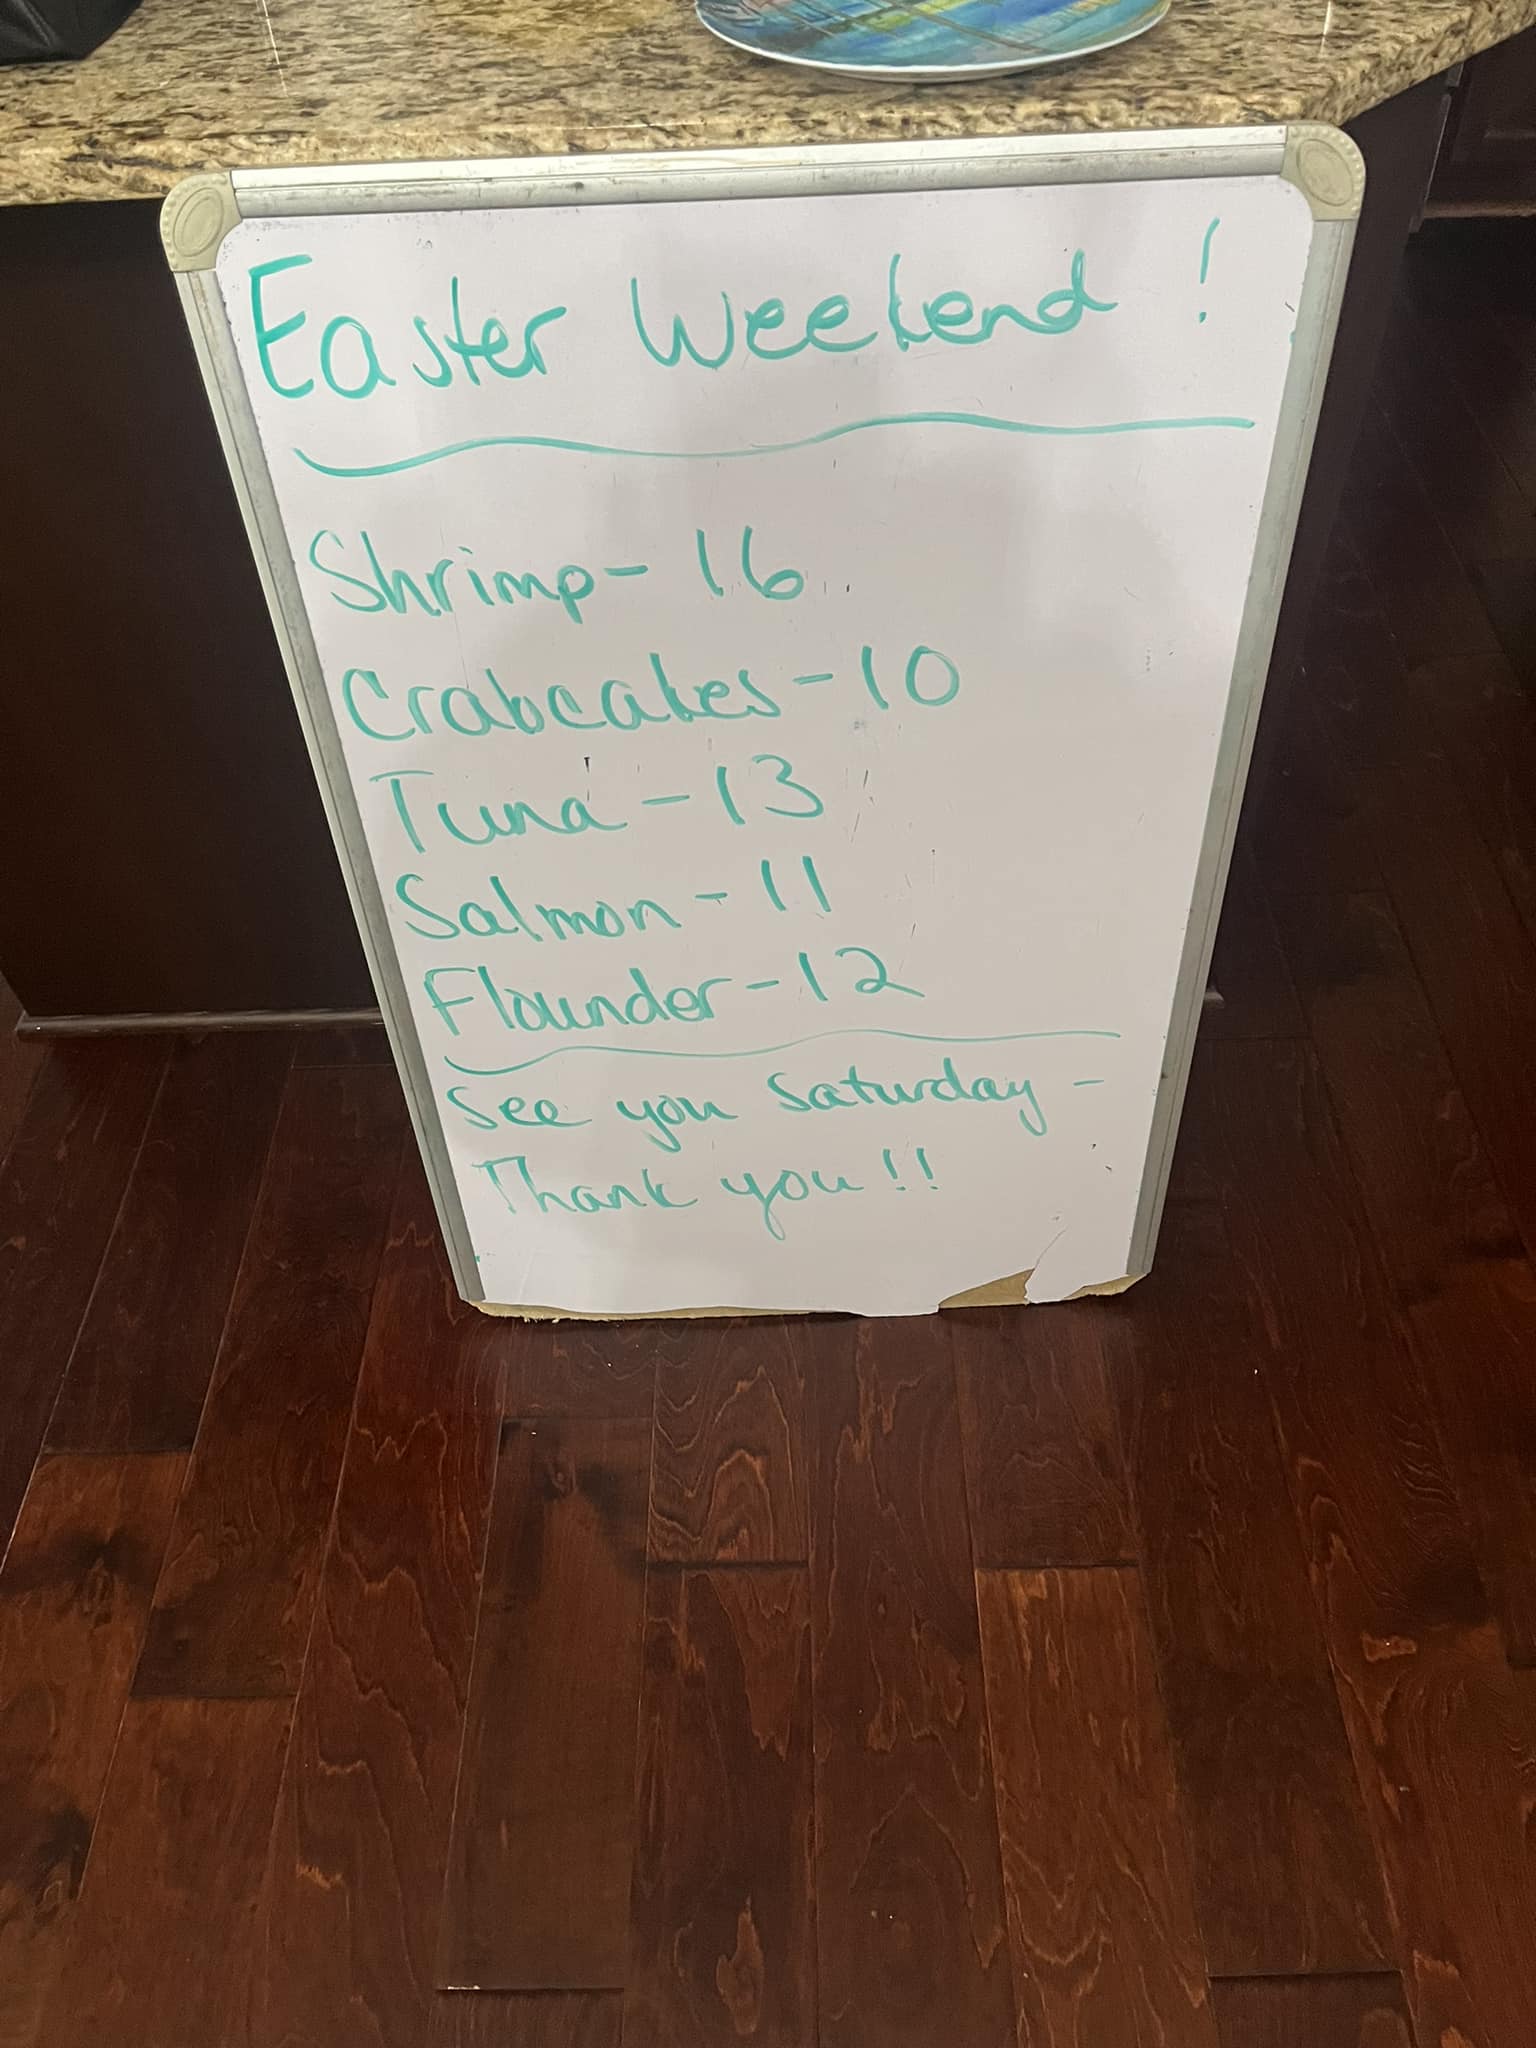 Easter Weekend!
Shrimp - 16
Crabcakes - 10
Tuna - 13
Salmon - 11
Flounder - 12
See you Saturday -
Thank you!!